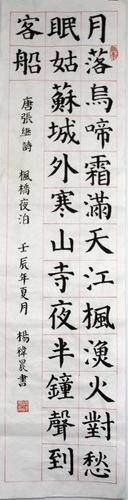 月落烏啼霜滿天江楓漁火對愁
眠姑蘇城外寒山寺夜半鐘聲到
客船
唐張繼詩 楓橋夜泊 壬辰年夏月 楊禕晨書